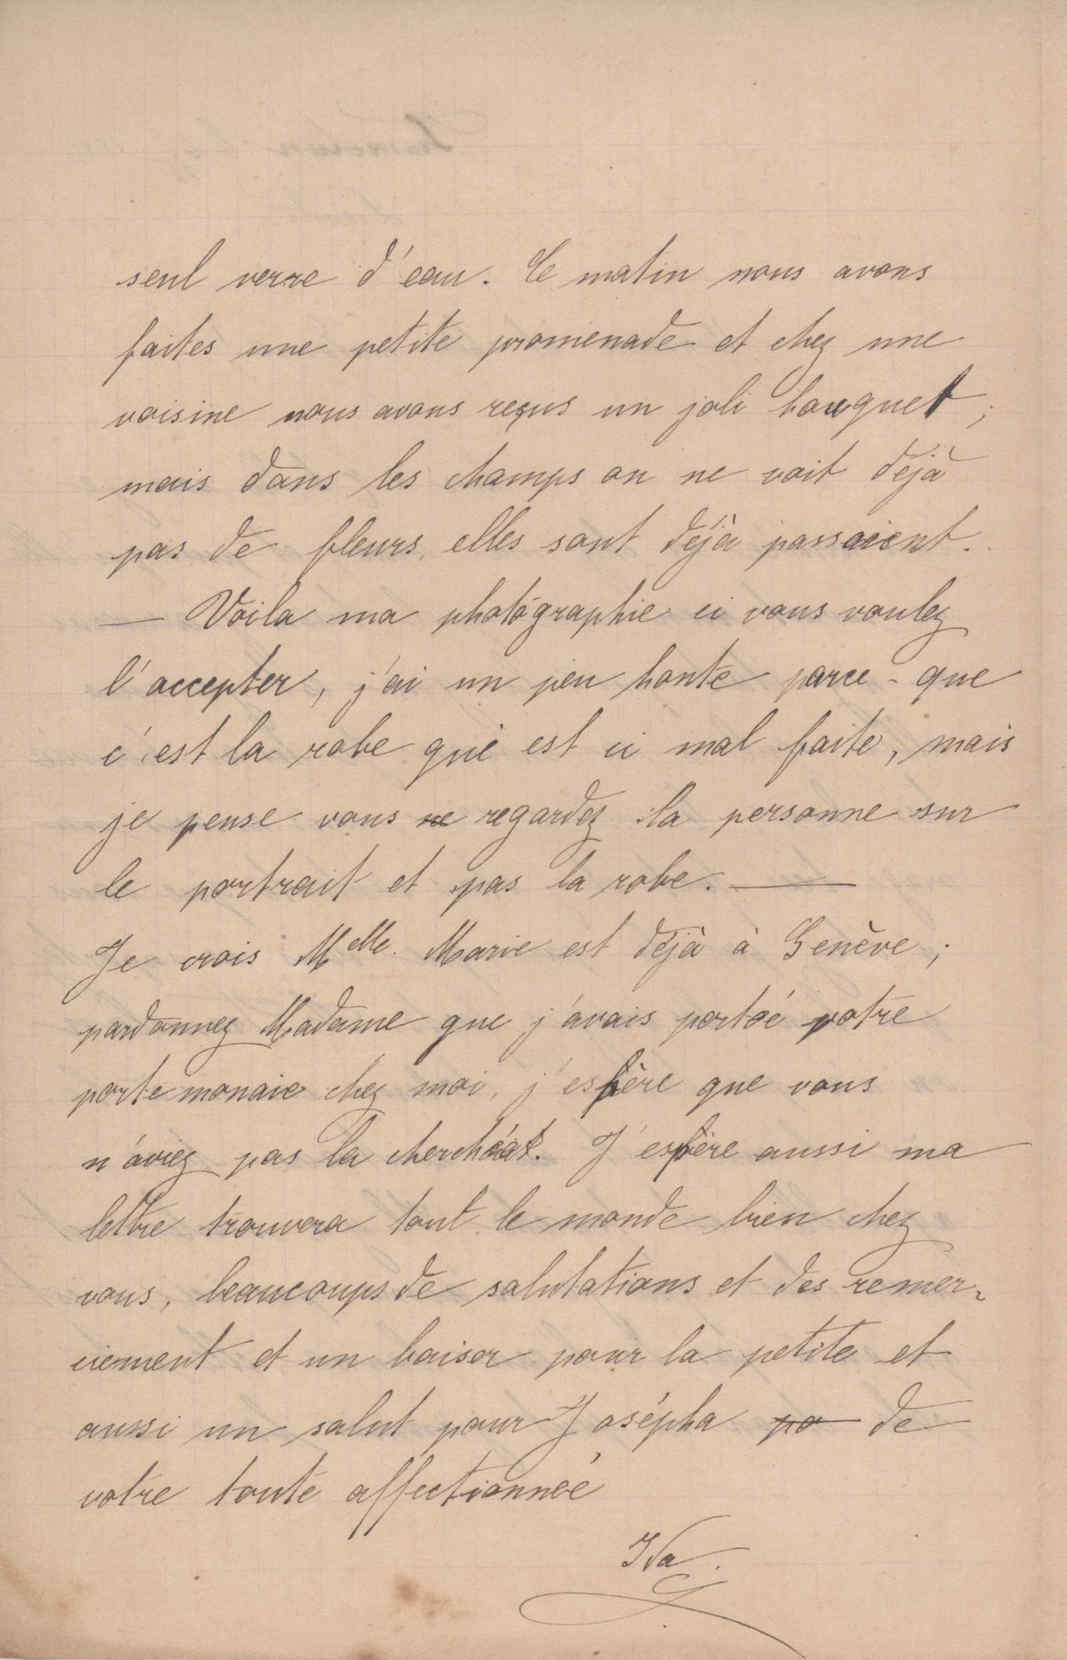 seul verre d'eau. Ce matin nous avons
faites une petite promenade et chez une
voisine nous avons reçus un joli bouquet;
mais dans les champs on ne voit déjà
pas de fleurs elles sont déjà passaient.
— Voila ma photógraphie ci vous voulez
l'accepter, j'ai un peu honte parce-que
c'est la robe qui est ci mal faite, mais
je pense vous ne regardez la personne sur
le portrait et pas la robe. —
Je crois Melle. Marie est déjà à Genève;
pardonnez Madame que j'avais portoé votre
porte monaie chez moi, j'espère que vous
n'aviez pas la
J'espère aussi ma
lettre trouvera tout le monde bien chez
vous, beaucoups de salutations et des remer-
ciement et un baiser pour la petite et
aussi un salut pour Josépha po de
votre toute affectionnéé
Ida.